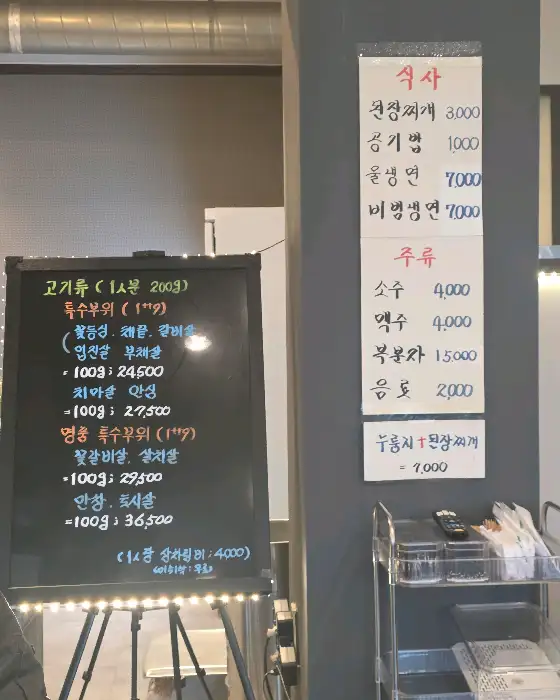 고기류 (1人분 200g)
특수부위 (1⁺⁺9)
(꽃등심. 채끝. 갈비살
업진살 부채살
= 100g; 24,500
치마살 안심
= 100g; 27,500
명품 특수부위 (1⁺⁺9)
꽃갈비살. 살치살
= 100g; 29,500
안창. 토시살
= 100g; 36,500
(1人당 상차림비 : 4,000)
무료)
식사
된장찌개 3,000
공기밥 1,000
물냉면 7,000
비빔냉면 7,000
주류
소주 4,000
맥주 4,000
복분자 15,000
음료 2,000
누룽지 + 된장찌개
= 7,000